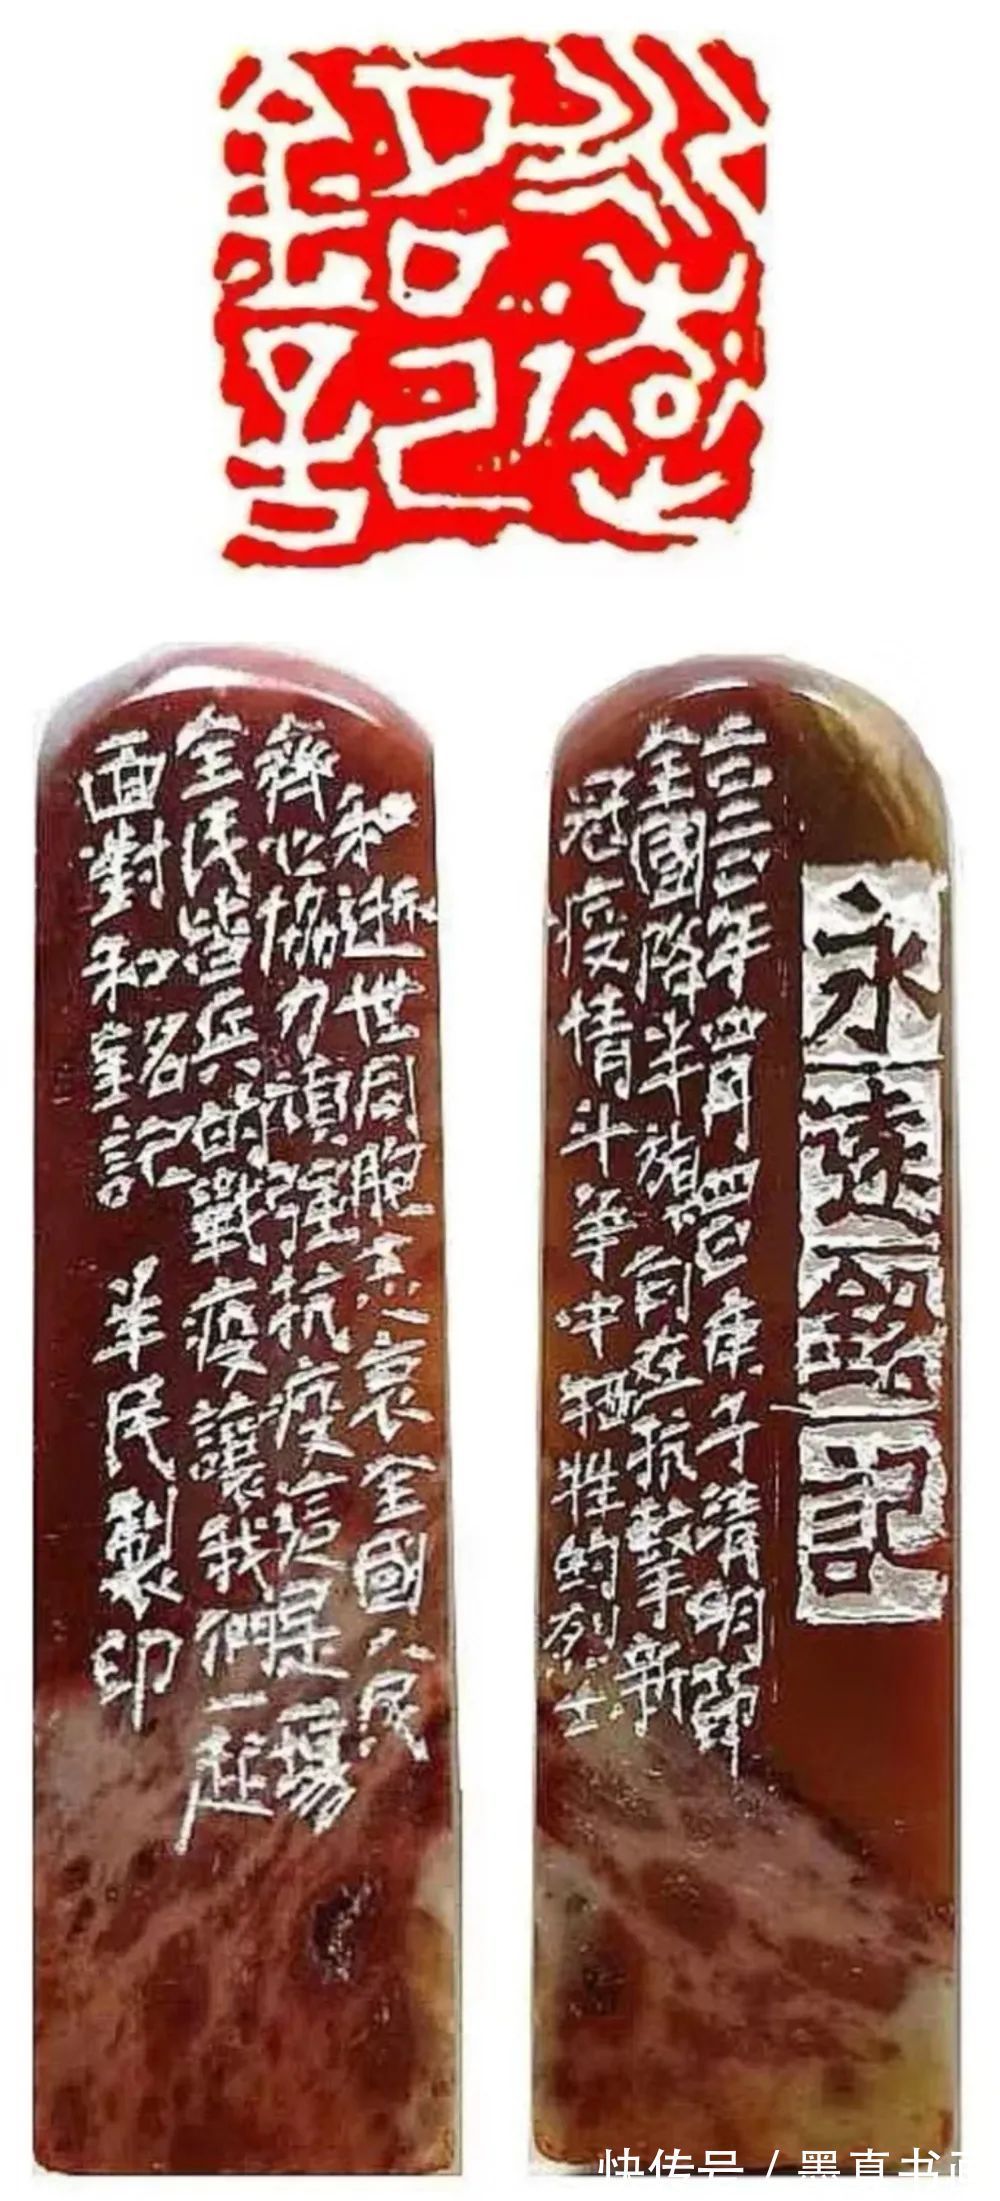 永遠銘記
永遠銘記
二〇二〇年四月四日庚子清明節
全國降半旗向在抗擊新
冠疫情斗爭中犧牲的烈士
和逝世同胞志哀全國人民
齊心協力頑強抗疫這是一場
全民皆兵的戰疫讓我們一起
面對和銘記
羊民製印
快传号 / 墨真书画